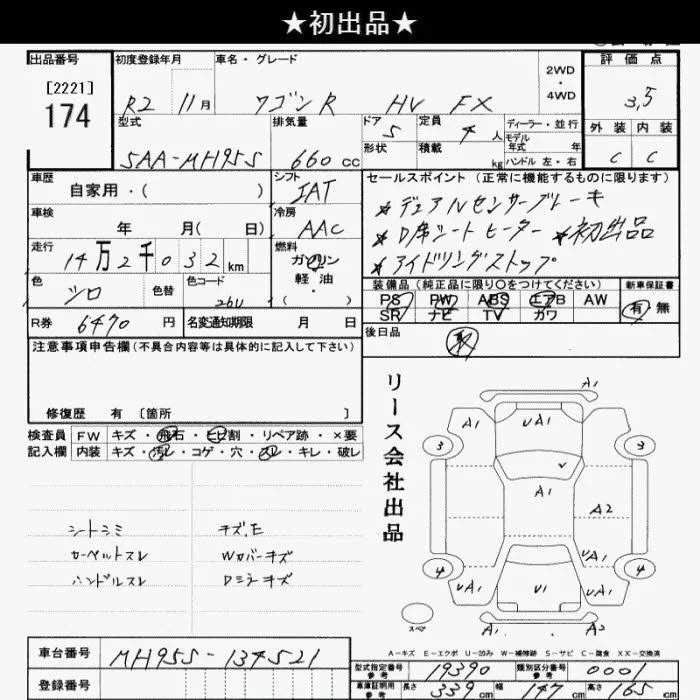 ★初出品★
出品番号 [2221] 174
初度登録年月 R2 11月
車名・グレード ワゴンR HV FX
2WD・4WD
評価点 3,5
型式 5AA-MH95S
排気量 660 cc
ドア 5
形状
定員 4 人
積載 kg
ディーラー・並行
モデル年式 年
ハンドル 左・右
外装 C
内装 C
車歴 自家用・( )
シフト IAT
車検 年 月( 日)
冷房 AAC
走行 14万2千032km
燃料 ガソリン・軽油・( )
色 シロ
色替
色コード 26U
R券 6470 円
名変通知期限 月 日
セールスポイント (正常に機能するものに限ります)
★デュアルセンサーブレーキ
★D席シートヒーター ★初出品
★アイドリングストップ
装備品 (純正品に限り○をつけてください)
新車保証書
PS PW ABS エアB AW
SR ナビ TV カワ
有 無
後日品
取
注意事項申告欄(不具合内容等は具体的に記入して下さい)
修復歴 有 [箇所 ]
検査員記入欄
FW キズ・飛石・ヒビ割・リペア跡・×要
内装 キズ・汚レ・コゲ・穴・スレ・キレ・破レ
シートシミ キズ、E
カーペットスレ Wカバーキズ
ハンドルスレ Dミラーキズ
リース会社出品
A1
UA1
3 3
A1
A2
UA1
4 4
UA1 U1 UA1
スペア
A1 A2
A-キズ E-エクボ U-凹み W-補修跡 S-サビ C-腐食 XX-交換済
車台番号 MH95S-134521
登録番号
型式指定番号 参考 19390
類別区分番号 参考 0001
車庫証明用 参考 長さ 339cm 幅 147cm 高さ 165cm